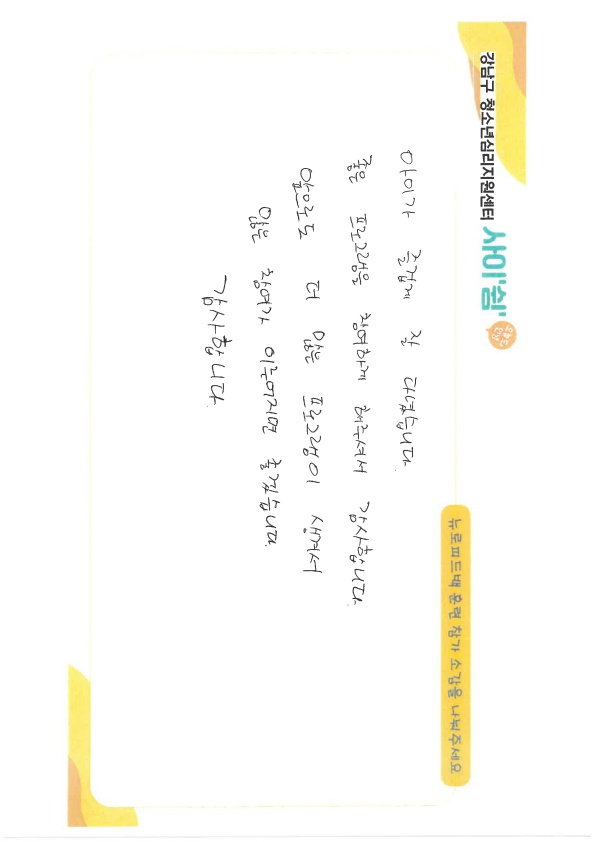 강남구 청소년심리지원센터 사이쉼
뉴로피드백 훈련 참가 소감을 나눠주세요
아이가 즐겁게 잘 다녔습니다.
좋은 프로그램을 참여하게 해주셔서 감사합니다.
앞으로도 더 많은 프로그램이 생겨서
많은 참여가 이루어지면 좋겠습니다.
감사합니다.